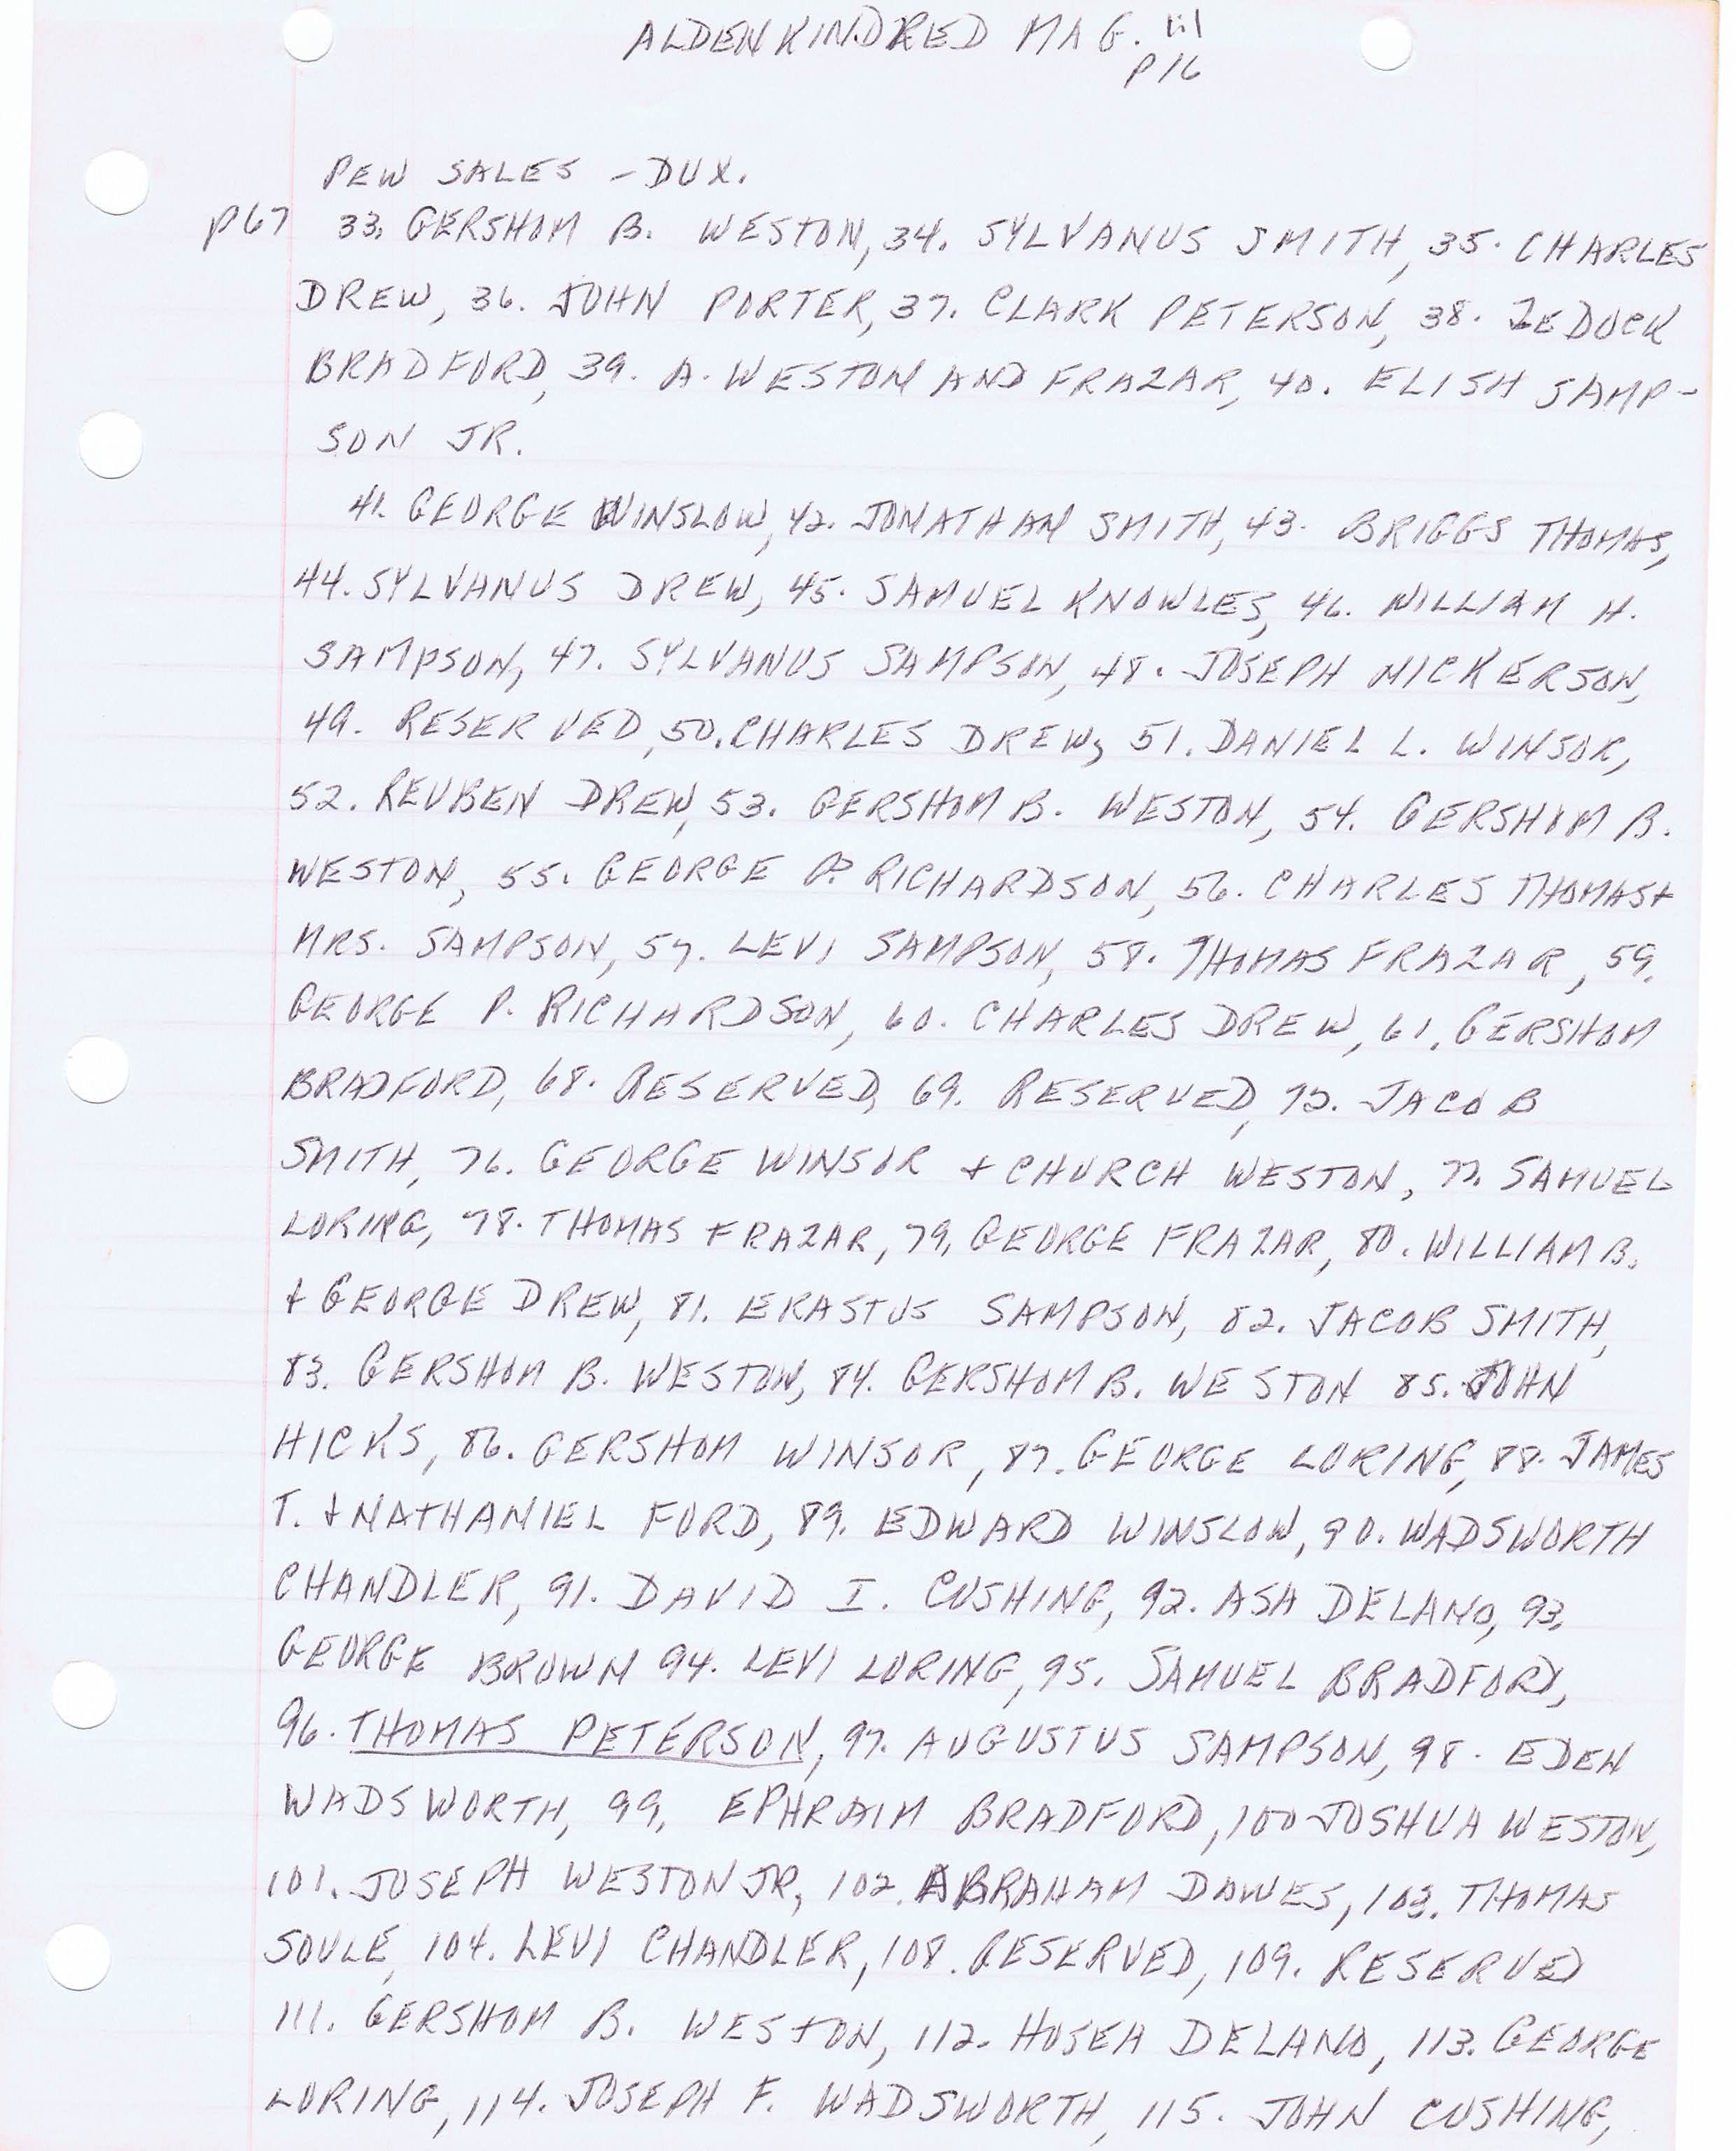 ALDEN KINDRED MAG. 1:1
p 16
PEW SALES - DUX.
p 67 33. GERSHOM B. WESTON, 34. SYLVANUS SMITH, 35. CHARLES
DREW, 36. JOHN PORTER, 37. CLARK PETERSON, 38. ZEDOCK
BRADFORD, 39. A. WESTON AND FRAZAR, 40. ELISH SAMP-
SON JR.
41. GEORGE WINSLOW, 42. JONATHAN SMITH, 43. BRIGGS THOMAS,
44. SYLVANUS DREW, 45. SAMUEL KNOWLES, 46. WILLIAM H.
SAMPSON, 47. SYLVANUS SAMPSON, 48. JOSEPH NICKERSON,
49. RESERVED, 50. CHARLES DREW, 51. DANIEL L. WINSOR,
52. REUBEN DREW, 53. GERSHOM B. WESTON, 54. GERSHOM B.
WESTON, 55. GEORGE P. RICHARDSON, 56. CHARLES THOMAS +
MRS. SAMPSON, 57. LEVI SAMPSON, 58. THOMAS FRAZAR, 59.
GEORGE P. RICHARDSON, 60. CHARLES DREW, 61. GERSHOM
BRADFORD, 68. RESERVED, 69. RESERVED, JACOB
SMITH, 76. GEORGE WINSOR + CHURCH WESTON, 77. SAMUEL
LORING, 78. THOMAS FRAZAR, 79. GEORGE FRAZAR, 80. WILLIAM B.
+ GEORGE DREW, 81. ERASTUS SAMPSON, 82. JACOB SMITH,
83. GERSHOM B. WESTON, 84. GERSHOM B. WESTON 85. JOHN
HICKS, 86. GERSHOM WINSOR, 87. GEORGE LORING, 88. JAMES
T. + NATHANIEL FORD, 89. EDWARD WINSLOW, 90. WADSWORTH
CHANDLER, 91. DAVID I. CUSHING, 92. ASA DELANO, 93.
GEORGE BROWN 94. LEVI LORING, 95. SAMUEL BRADFORD,
96. THOMAS PETERSON, 97. AUGUSTUS SAMPSON, 98. EDEN
WADSWORTH, 99. EPHRAIM BRADFORD, 100 JOSHUA WESTON,
101. JOSEPH WESTON JR, 102. ABRAHAM DAWES, 103. THOMAS
SOULE, 104. LEVI CHANDLER, 108. RESERVED, 109. RESERVED
111. GERSHOM B. WESTON, 112. HOSEA DELANO, 113. GEORGE
LORING, 114. JOSEPH F. WADSWORTH, 115. JOHN CUSHING,